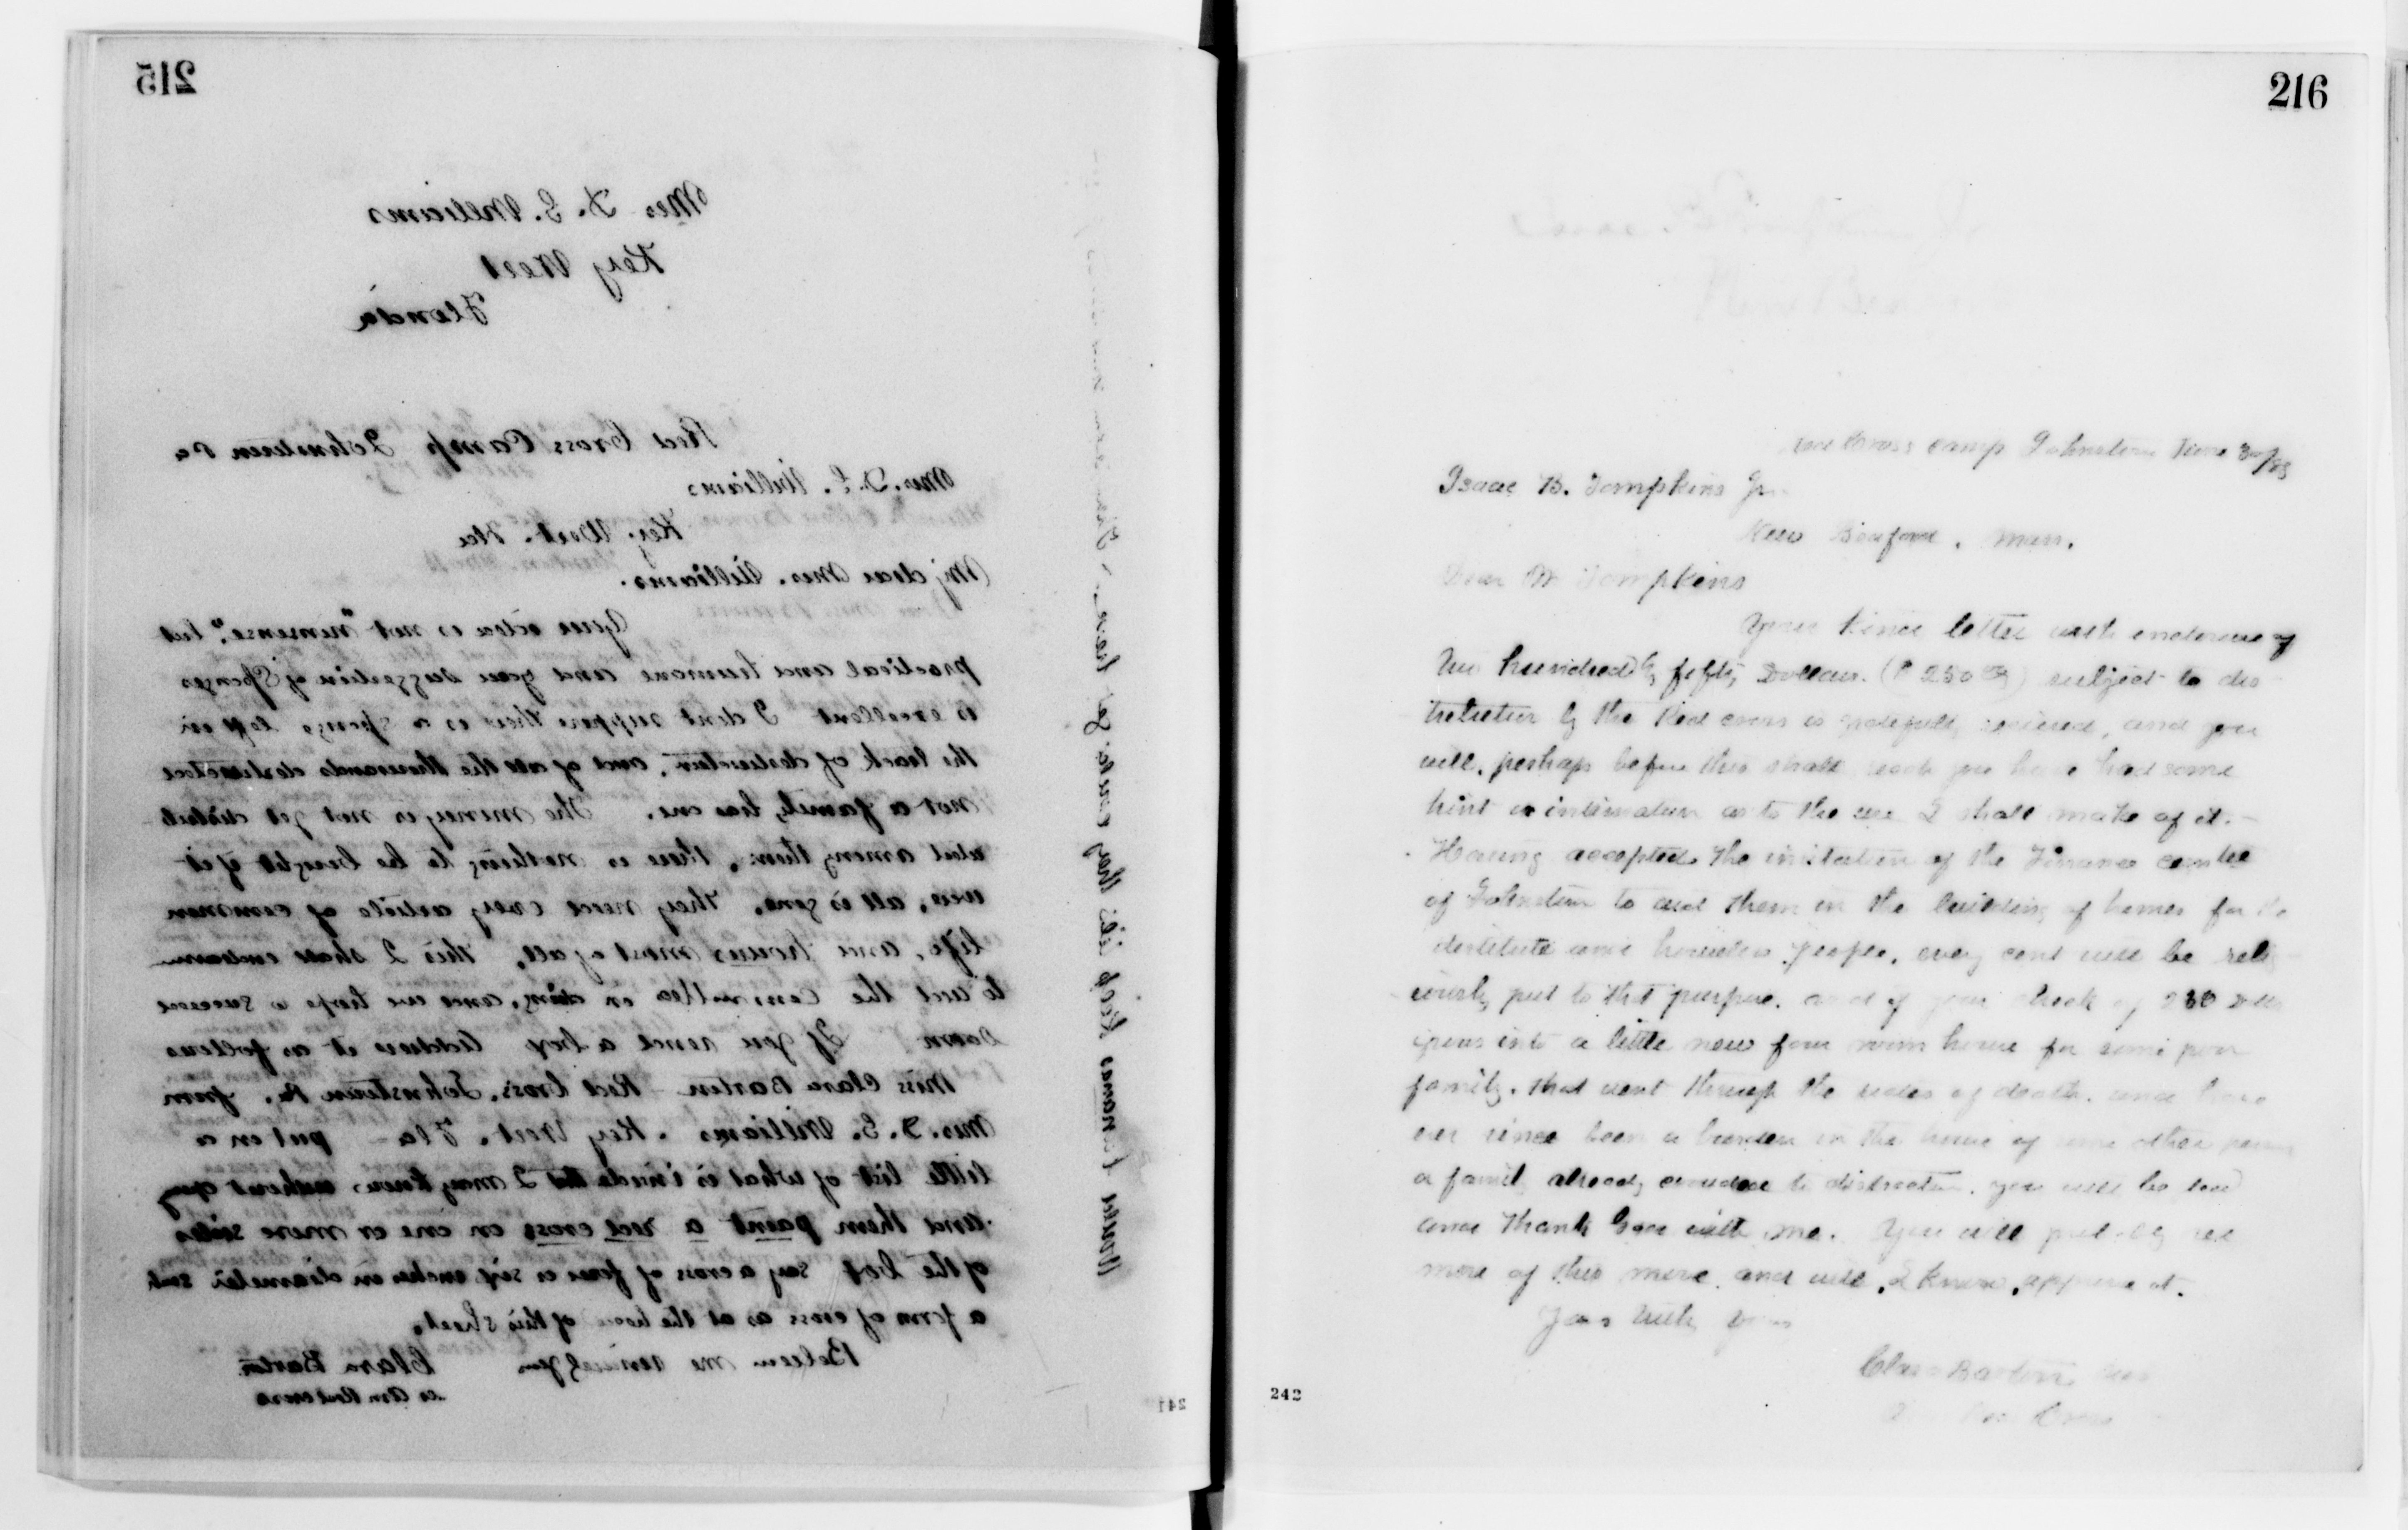 215
Mrs. D. E. Williams
Key West
Florida
Red Cross Camp Johnstown Pa
Mrs. D. E. Williams
Key West. Fla
My dear Mrs. Williams.
Your idea is not "nonsense", but
practical and humane and your suggestion of Sponges
is excellent I dont suppose there is a sponge left in
the track of destruction, and of all the thousands destituted
not a family has one. The money is not yet distrib
uted among them, there is nothing to be bought if it
were, all is gone. They need every article of common
life, and houses most of all. this I shall endeavor
to aid the committee in doing, and we hope to succeed
soon If you send a box Address it as follows
Miss Clara Barton Red Cross. Johnstown Pa. from
Mrs. D. E. Williams. Key West. Fla - put on a
little list of what is inside that I may know without opening
and then paint a red cross on one or more sides
of the box say a cross of four or six inches in diameter such
a form of cross as at the head of this sheet.
Believe me
Clara Barton
Am Red Cross
Would furnaces kiln of
216
Red Cross Camp Johnstown June 30/89
Isaac B. Tompkins Jr.
New Bedford. Mass.
Dear Mr Tompkins
Your kind letter with enclosure of
two hundred & fifty Dollars. ($250 00) subject to dis
tribution by the Red cross is gratefully received, and you
will, perhaps before this shall reach you have had some
hint or intimation as to the use I shall make of it. -
Having accepted the invitation of the Finance comtee
of Johnstown to aid them in the building of homes for the
destitute and homeless people, every cent will be relig
iously put to that purpose. and if your check of 250 Dolls
grows into a little new four room house for some poor
family. that went through the of death. and have
ever since been a burden in the house of some other poor
a family already crowded to distraction. you will be
and thank God with me. You will probably see
more of this move and will, I know, approve it.
Yours truly
Clara Barton
242
241